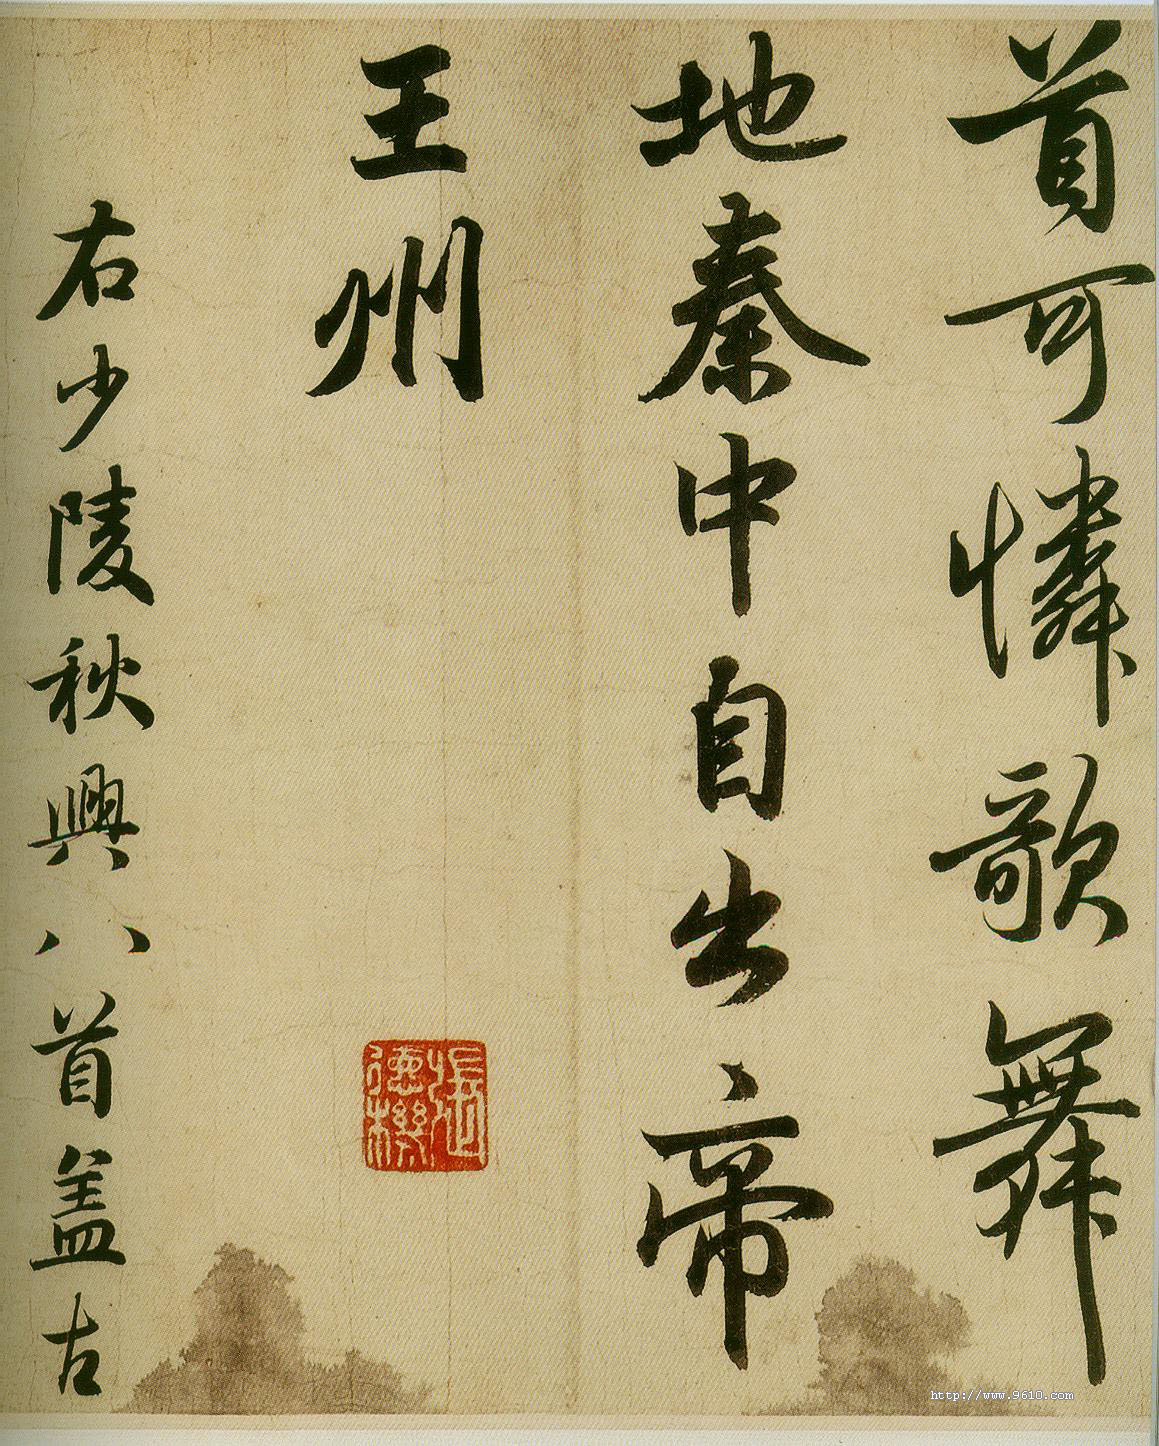 首可憐歌舞
地秦中自古帝
王州
右少陵秋興八首盖古
張氏德機
http://www.9610.com